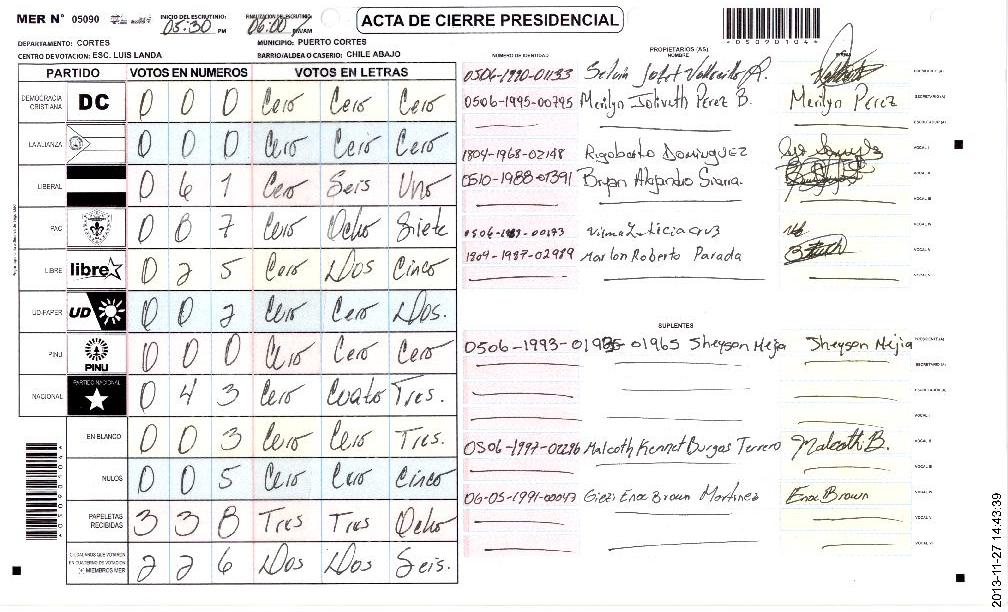 MER N° 05090 INICIO DEL ESCRUTINIO: 05:30 PM FINALIZACION DEL ESCRUTINIO: 06:00 PM/AM
ACTA DE CIERRE PRESIDENCIAL
050901044
DEPARTAMENTO: CORTES MUNICIPIO: PUERTO CORTES
CENTRO DE VOTACION: ESC. LUIS LANDA BARRIO/ALDEA O CASERIO: CHILE ABAJO
PARTIDO VOTOS EN NUMEROS VOTOS EN LETRAS
DEMOCRACIA CRISTIANA DC 0 0 0 Cero Cero Cero
LA ALIANZA 0 0 0 Cero Cero Cero
LIBERAL 0 6 1 Cero Seis Uno
PAC 0 8 7 Cero Ocho Siete
LIBRE libre 0 2 5 Cero Dos Cinco
UD-FAPER UD 0 0 2 Cero Cero Dos.
PINU PINU 0 0 0 Cero Cero Cero
NACIONAL PARTIDO NACIONAL 0 4 3 Cero Cuato Tres.
EN BLANCO 0 0 3 Cero Cero Tres.
NULOS 0 0 5 Cero Cero Cinco
PAPELETAS RECIBIDAS 3 3 8 Tres Tres Ocho
CIUDADANOS QUE VOTARON EN CUADERNO DE VOTACION + MIEMBROS MER 2 2 6 Dos Dos Seis.
PROPIETARIOS (AS)
NUMERO DE IDENTIDAD NOMBRE FIRMA
0506-1990-01133
0506-1995-00795 Merilyn Perez B. Merilyn Perez SECRETARIO (A)
ESCRUTADOR (A)
1804-1968-02148 Rigoberto Dominguez VOCAL I
0510-1988-01391 Bryan Alejandro Sierra. VOCAL II
VOCAL III
Vilma Leticia Cruz VOCAL IV
1804-1987-02989 Marlon Roberto Parada VOCAL V
SUPLENTES
0506-1993-01965 Sheyson Mejia Sheyson Mejia PRESIDENTE (A)
SECRETARIO (A)
ESCRUTADOR (A)
VOCAL I
0506-1997-02296 Malcoth Kennet Burgos Terrero Malcoth B. VOCAL II
VOCAL III
06-05-1991-00047 Ena Brown Martinez Ena Brown VOCAL IV
VOCAL V
VOCAL VI
2013-11-27 14:43:39